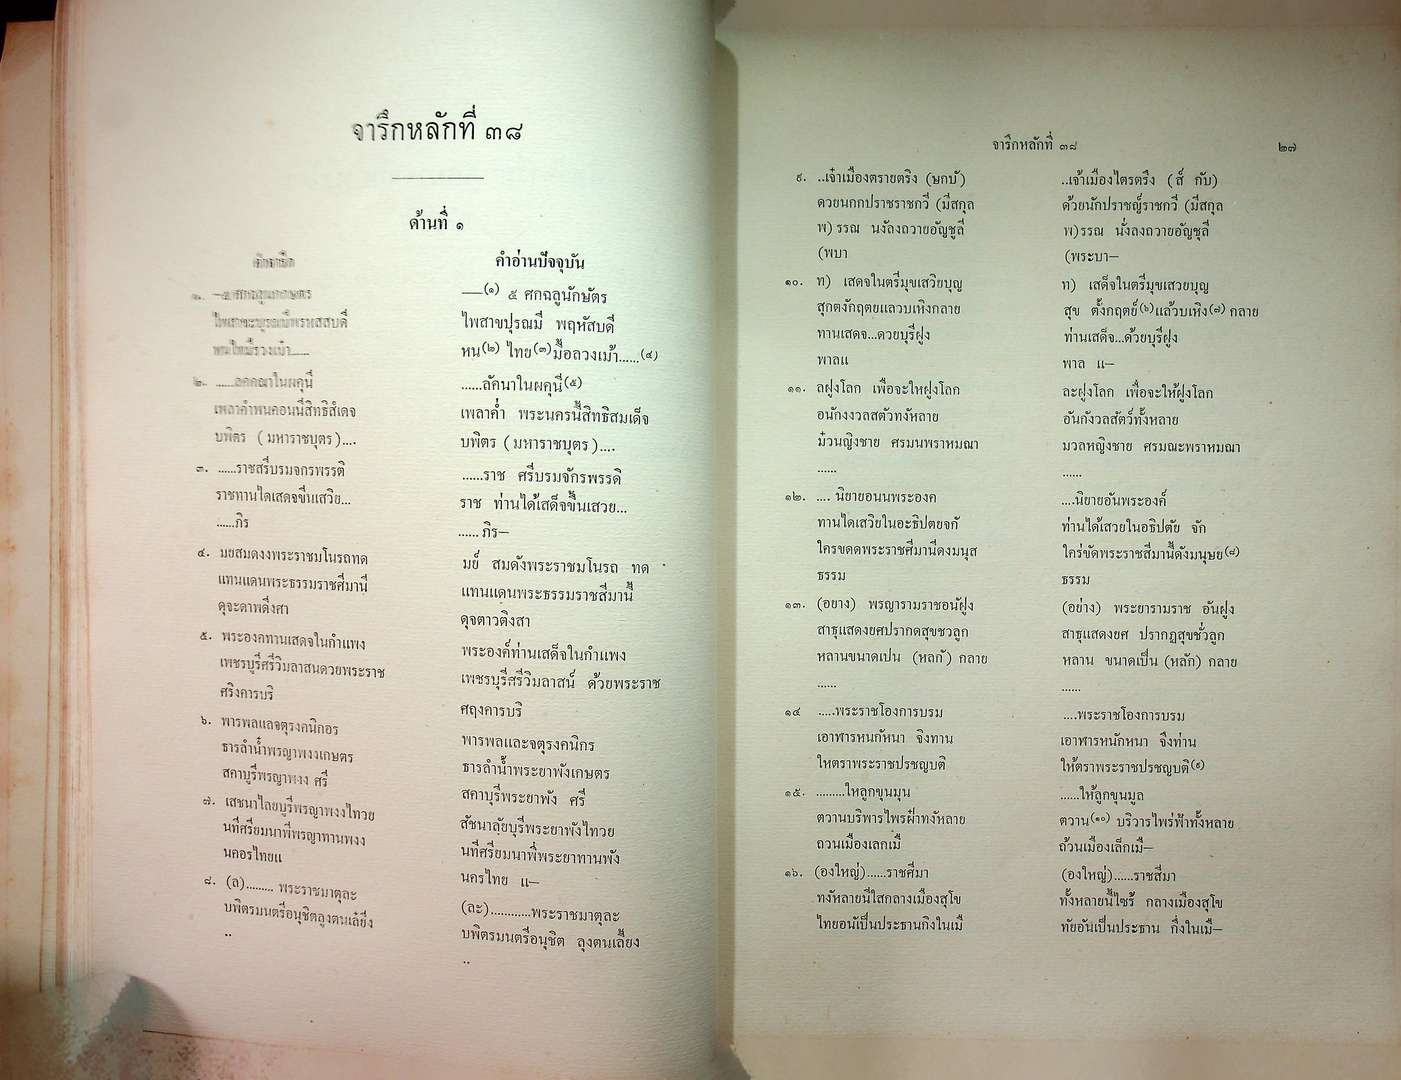 จารึกหลักที่ ๓๘
ด้านที่ ๑
คำจารึก
๑. —๕ ศกฉลูนกกษตร
ไพสาขะบูรณมีพรฺหสสบดี
หนไทยรวงเบ้า......
๒. ......ลคคณาในผคุนี
เพลาคำพนคอนนี้สิทธิสํเดจ
บพิตร (มหาราชบุตร)....
๓. ......ราชสรีบรมจกรพรรดิ
ราชทานไดเสดจขึ้นเสวิย...
......ภิร
๔. มยสมดงงพระราชมโนรถทด
แทนแดนพระธรรมราชสีมานี
ดุจะดาพดึงสา
๕. พระองคทานเสดจในกำแพง
เพชรบุรีศรีวิมลาสนดวยพระราช
ศริงการบริ
๖. พารพลแลจตุรงคนิกอร
ธารลำน้ำพรญาพงงเกษตร
สคาบุรีพรญาพงง ศรี
๗. เสชนาไลยบุรีพรญาพงงไทวย
นทีศรียมนาพี่พรญาทานพงง
นคอรไทยแ
๘. (ล)......... พระราชมาตุละ
บพิตรมนตรีอนุชิตลุงตนเลํยึง
..
คำอ่านปัจจุบัน
—(๑) ๕ ศกฉลูนักษัตร
ไพสาขปุรณมี พฤหัสบดี
หน(๒) ไทย(๓)มื้อลวงเม้า......(๔)
......ลัคนาในผคุนี(๕)
เพลาค่ำ พระนครนี้สิทธิสมเด็จ
บพิตร (มหาราชบุตร)....
......ราช ศรีบรมจักรพรรดิ
ราช ท่านได้เสด็จขึ้นเสวย...
...... ภิร—
มย์ สมดังพระราชมโนรถ ทด
แทนแดนพระธรรมราชสีมานี้
ดุจดาวดึงสา
พระองค์ท่านเสด็จในกำแพง
เพชรบุรีศรีวิมลาสน์ ด้วยพระราช
ศฤงคารบริ
พารพลและจตุรงคนิกร
ธารลำน้ำพระยาพังเกษตร
สคาบุรีพระยาพัง ศรี
สัชนาลัยบุรีพระยาพังไทวย
นทีศรียมนาพี่พระยาทานพัง
นครไทย แ—
(ละ)............พระราชมาตุละ
บพิตรมนตรีอนุชิต ลุงตนเลี้ยง
..
จารึกหลักที่ ๓๘
๒๗
๙. ..เจ๋าเมืองตรายตริง (ษกบ๋)
ดวยนกกปราชราชกวี (มีสกุล
พ) รรณ นงํลงถวายอัญชูลี
(พบา
๑๐. ท) เสดจในตรีมุขเสวิยบุญ
สุกตงักฤตยแลวบเหิงกลาย
ทานเสดจ...ดวยบุรีฝูง
พาลแ
๑๑. ลฝูงโลก เพื่อจะใหฝูงโลก
อนักงงวลสตัวทงัหลาย
ม๋วนญิงชาย ศรมนพราหมณา
......
๑๒. .... นิยายอนนพระองค
ทานไดเสวิยในอะธิปตยจกั
ใครขดดพระราชศีมานีดงมนุส
ธรรม
๑๓. (อยาง) พรญารามราชอนัฝูง
สาธุแสดงยศปรากดสุขชวลูก
หลานขนาดเปน (หลกั) กลาย
......
๑๔ .....พระราชโองการบรม
เอาฬารหนกัหนา จิงทาน
ใหตราพระราชปรชญบติ
๑๕. .........ใหลูกขุนมุน
ตวานบริพารไพรฝ๋าทงัหลาย
ถวนเมืองเลกเมื
๑๖. (องใหญ่)......ราชศีมา
ทงัหลายนี้ใสกลางเมืองสุโข
ไทยอนัเปนประธานกึงในเมื
..เจ้าเมืองไตรตรึง (ส์ กับ)
ด้วยนักปราชญ์ราชกวี (มีสกุล
พ)รรณ นั่งลงถวายอัญชุลี
(พระบา—
ท) เสด็จในตรีมุขเสวยบุญ
สุข ตั้งกฤตย์(๖)แล้วบเหิง(๗) กลาย
ท่านเสด็จ...ด้วยบุรีฝูง
พาล แ—
ละฝูงโลก เพื่อจะให้ฝูงโลก
อันกังวลสัตว์ทั้งหลาย
มวลหญิงชาย ศรมณะพราหมณา
......
....นิยายอันพระองค์
ท่านได้เสวยในอธิปตัย จัก
ใคร่ขัดพระราชสีมานี้ดังมนุษย(๘)
ธรรม
(อย่าง) พระยารามราช อันฝูง
สาธุแสดงยศ ปรากฏสุขชั่วลูก
หลาน ขนาดเป็น (หลัก) กลาย
......
....พระราชโองการบรม
เอาฬารหนักหนา จึงท่าน
ให้ตราพระราชปรชญบติ(๙)
......ให้ลูกขุนมูล
ตวาน(๑๐) บริวารไพร่ฟ้าทั้งหลาย
ถ้วนเมืองเล็กเมื—
(องใหญ่)......ราชสีมา
ทั้งหลายนี้ไซร้ กลางเมืองสุโข
ทัยอันเป็นประธาน กึ่งในเมื—